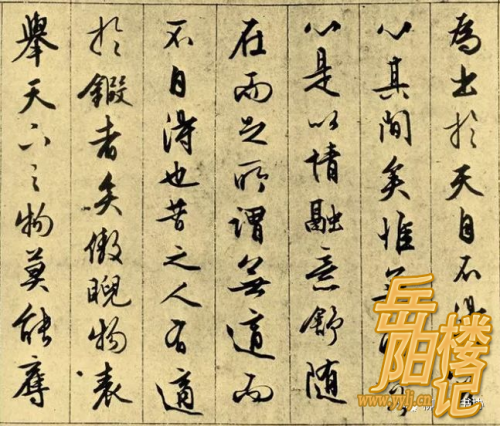 為出於天自不
心其間矣惟無
心是以情融意舒随
在而足所謂無適而
不自得也昔之人有適
於鍜者矣傲睨物表
舉天下之物莫能
岳阳楼记
www.yylj.cn